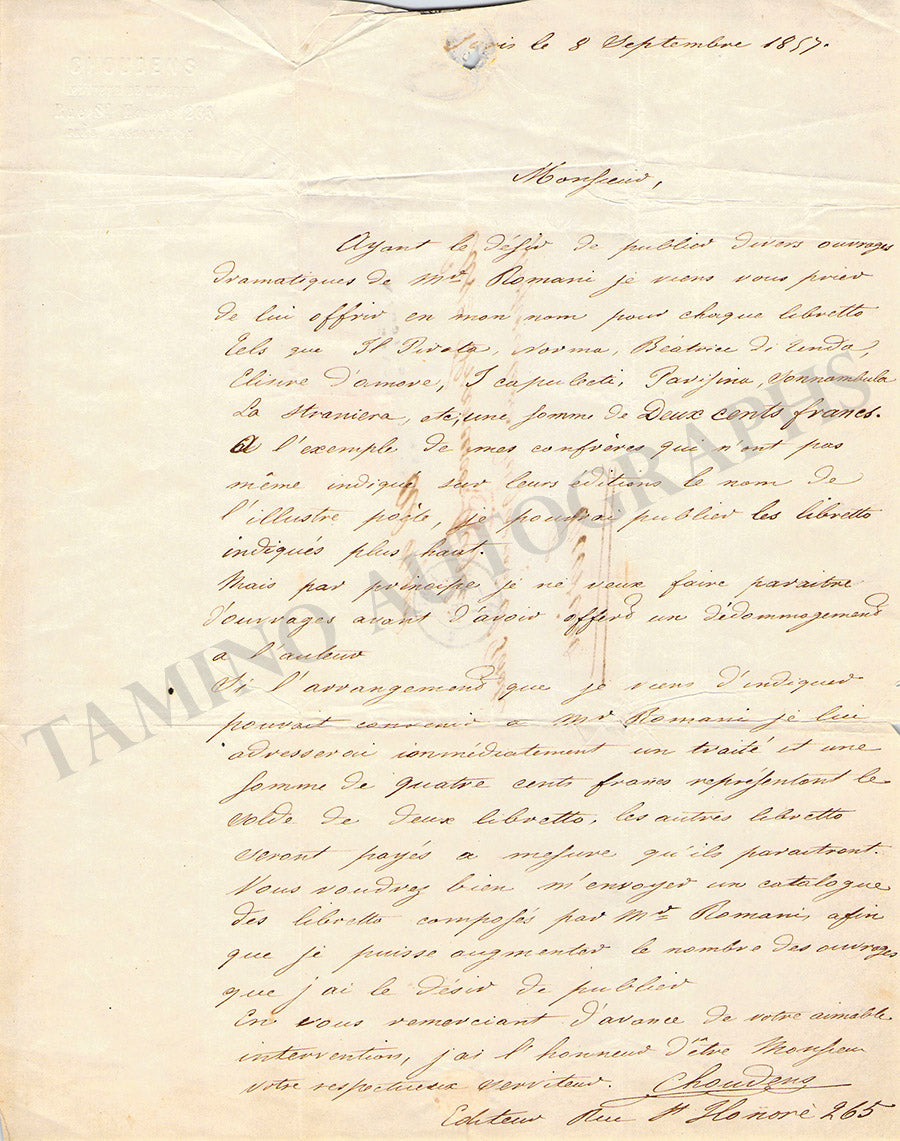 Paris le 8 Septembre 1857.
CHOUDENS
Monsieur,
Ayant le désir de publier divers ouvrages
dramatiques de Mr. Romani je viens vous prier
de lui offrir en mon nom pour chaque libretto
tels que Il Pirata, Norma, Béatrice di Tenda,
Elisire d'amore, I capuleti, Parisina, Sonnambula
La Straniera, etc, une somme de Deux cents francs.
A l'exemple de mes confrères qui n'ont pas
même indiqué sur leurs éditions le nom de
l'illustre poëte, je pourrai publier les libretto
indiqués plus haut.
Mais par principe je ne veux faire paraitre
d'ouvrages avant d'avoir offert un dédommagement
a l'auteur
Si l'arrangement que je viens d'indiquer
pouvait convenir a Mr Romani je lui
adresserai immédiatement un traité et une
somme de quatre cents francs représentant le
solde de deux libretto, les autres libretto
seront payés a mesure qu'ils paraitront.
Vous voudrez bien m'envoyer un catalogue
des libretto composés par Mr. Romani, afin
que je puisse augmenter le nombre des ouvrages
que j'ai le désir de publier
En vous remerciant d'avance de votre aimable
intervention, j'ai l'honneur d'être Monsieur
votre respectueux serviteur. Choudens
Editeur Rue St Honoré 265
TAMINO AUTOGRAPHS